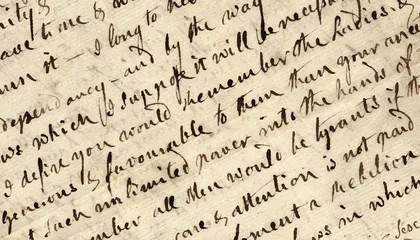 nity &
ave to one &
um it — I long to he
dependancy — and by the way
ws which I suppose it will be necepa
I desire you would Remember the Ladies, &
generous & favourable to them than your ance
t such unlimited power into the hands of
ember all Men would be tyrants if th
care & attention is not paid
oment a Rebelion
ws in which